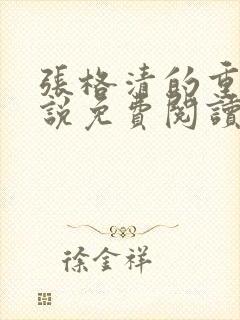 張格清的重
說免費閱讀
徐金祥